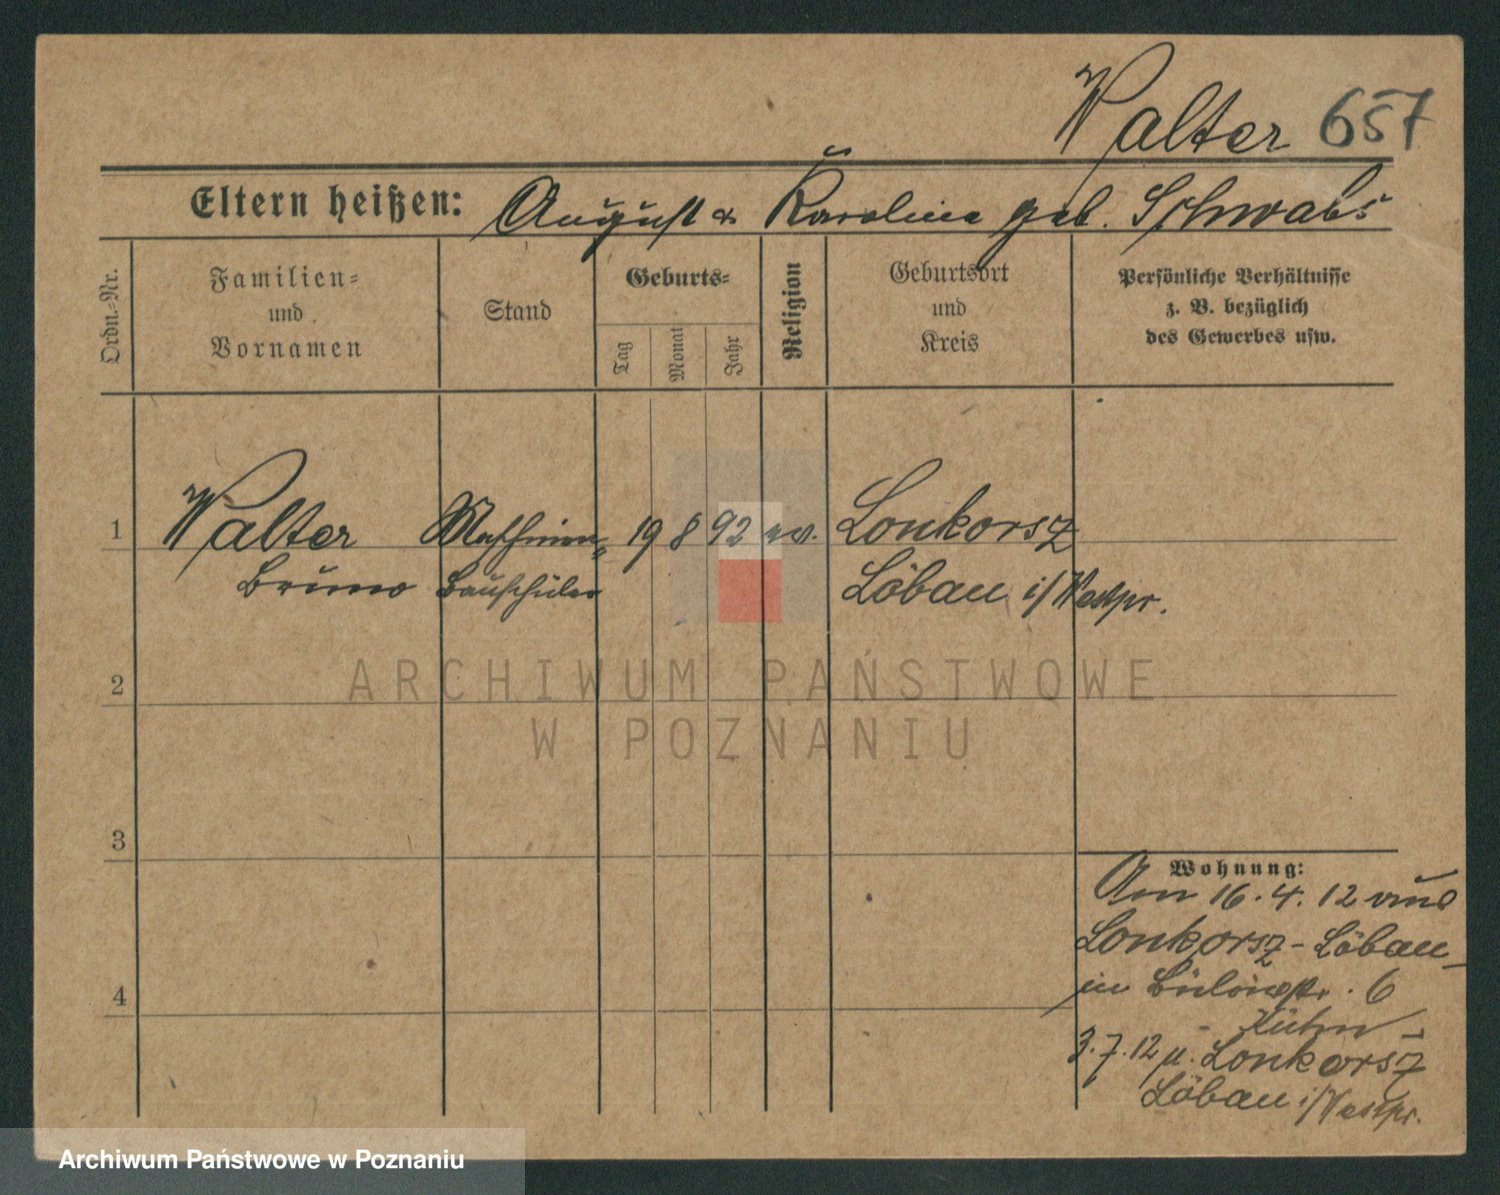 Walter 657
Eltern heißen: August & Karoline geb. Schwabs
Ordn.-Nr.
Familien-
und
Vornamen
Stand
Geburts-
Tag
Monat
Jahr
Religion
Geburtsort
und
Kreis
Persönliche Verhältnisse
z. B. bezüglich
des Gewerbes usw.
1 Walter Maschinen- 19 8 92 ev. Lonkorsz
Bruno Bauschüler Löbau i/Westpr.
2
3
4
Wohnung:
Am 16.4.12 aus
Lonkorsz - Löbau
in Bülowstr. 6
- Kühn -
3.7.12 n. Lonkorsz
Löbau i/Westpr.
ARCHIWUM PAŃSTWOWE
W POZNANIU
Archiwum Państwowe w Poznaniu